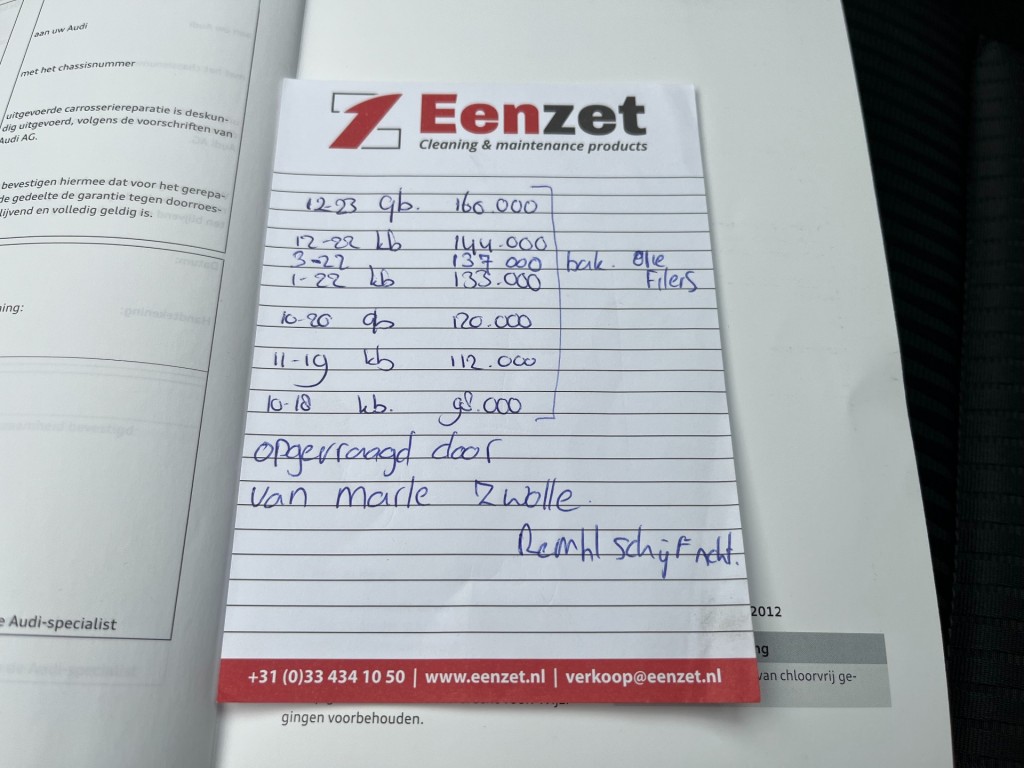 aan uw Audi
met het chassisnummer
uitgevoerde carrosseriereparatie is deskun-
dig uitgevoerd, volgens de voorschriften van
Audi AG.
bevestigen hiermee dat voor het gerepa-
de gedeelte de garantie tegen doorroes-
lijvend en volledig geldig is.
ning:
e Audi-specialist
Eenzet
Cleaning & maintenance products
12-23 gb. 160.000
12-22 kb 144.000
3-22 137 000 bak. Olie
1-22 kb 133.000 Filers
10-20 gb 120.000
11-19 kb 112.000
10-18 kb. 98.000
opgevraagd door
van marle Zwolle.
Remhl schijf acht.
+31 (0)33 434 10 50 | www.eenzet.nl | verkoop@eenzet.nl
2012
ng
van chloorvrij ge-
gingen voorbehouden.